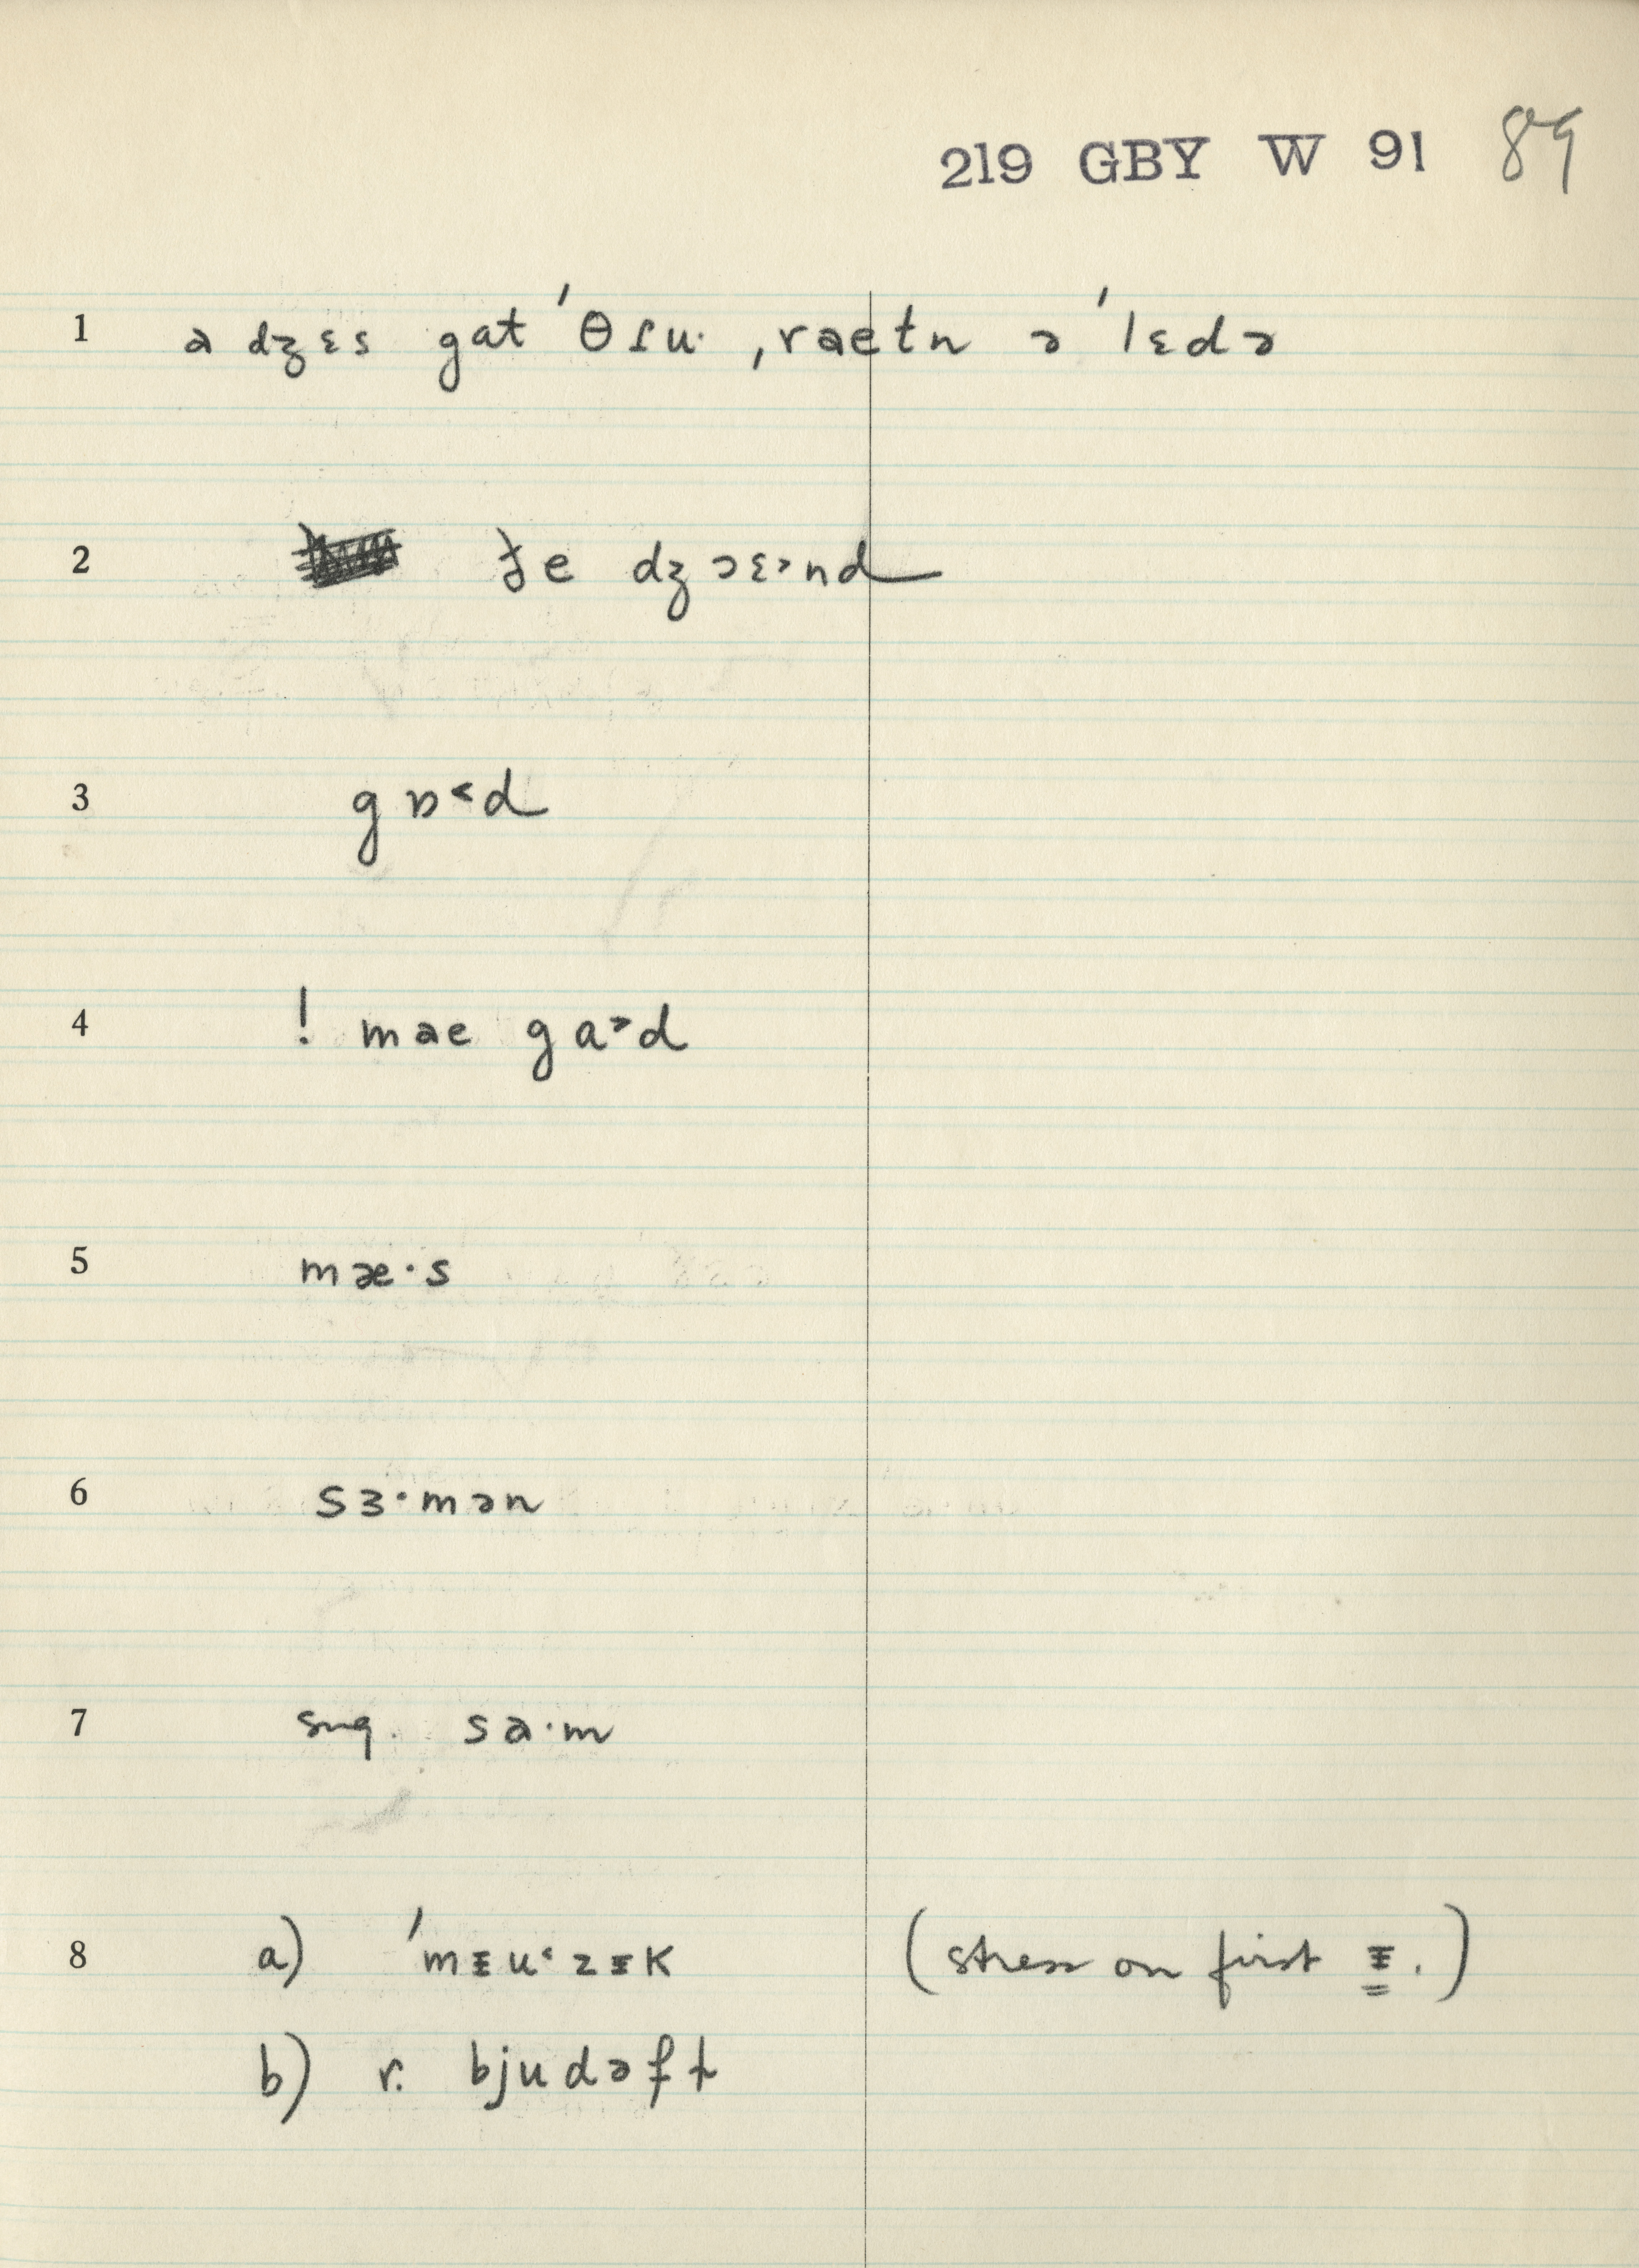 219 GBY W 91 89
1 a dʒɛs gat 'θɪu· ,raetn ə 'lɛdə
2 ɟe dʒɔɛ>nd
3 g ɒ<d
4 ! mae ga>d
5 mæ·s
6 sɜ·mən
7 sng. sa·m
8 a) 'mɪu<zɪk (stress on first ɪ.)
b) r. bjudəft